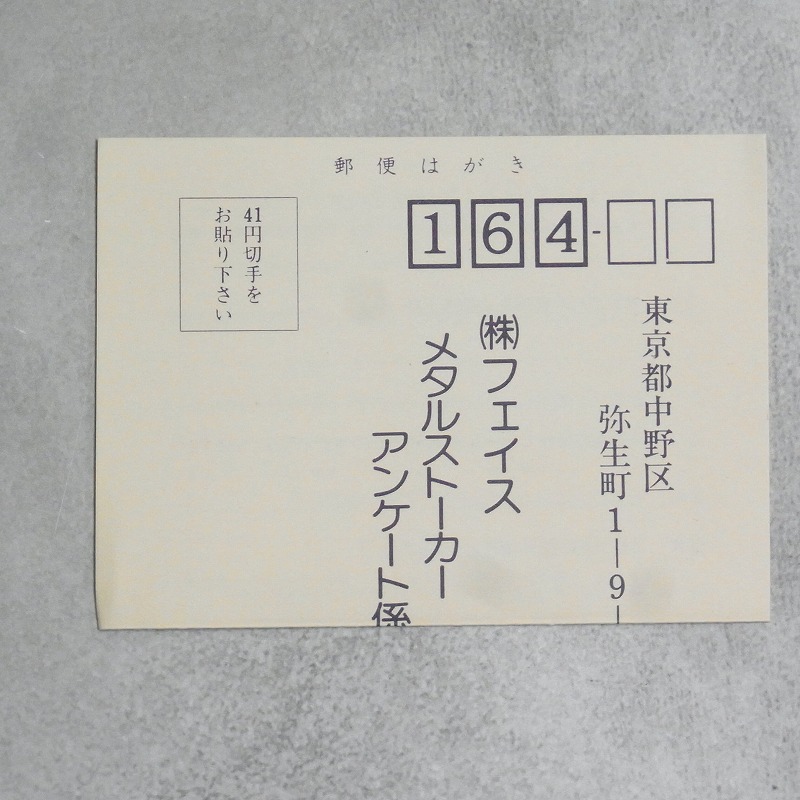 郵便はがき
164-
東京都中野区
弥生町1-9-
㈱フェイス
メタルストーカー
アンケート係
41円切手を
お貼り下さい